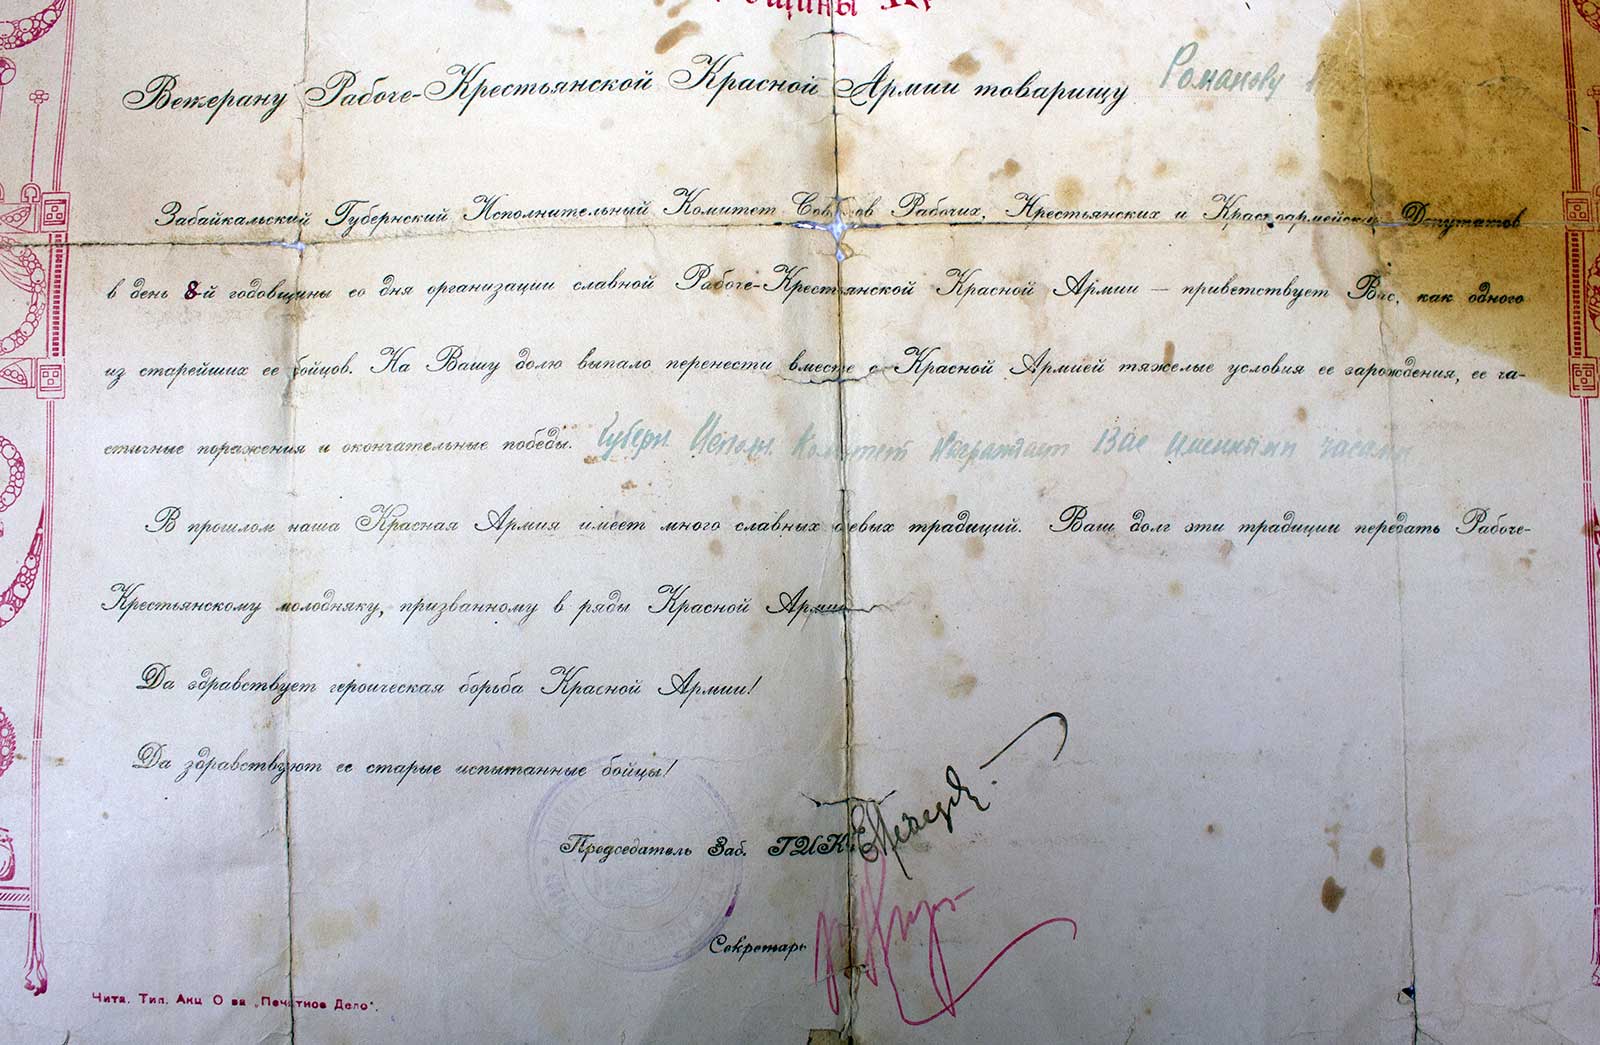 Ветерану Рабоче-Крестьянской Красной Армии товарищу Романову
Забайкальский Губернский Исполнительный Комитет Советов Рабочих, Крестьянских и Красноармейских Депутатов
в день 8-й годовщины со дня организации славной Рабоче-Крестьянской Красной Армии — приветствует Вас, как одного
из старейших ее бойцов. На Вашу долю выпало перенести вместе с Красной Армией тяжелые условия ее зарождения, ее ча-
стичные поражения и окончательные победы. Губерн. Исполн. Комитет награждает Вас именными часами
В прошлом наша Красная Армия имеет много славных боевых традиций. Ваш долг эти традиции передать Рабоче-
Крестьянскому молодняку, призванному в ряды Красной Армии
Да здравствует героическая борьба Красной Армии!
Да здравствуют ее старые испытанные бойцы!
Председатель Заб. ГИК
Секретарь
Чита. Тип. Акц О ва „Печатное Дело".